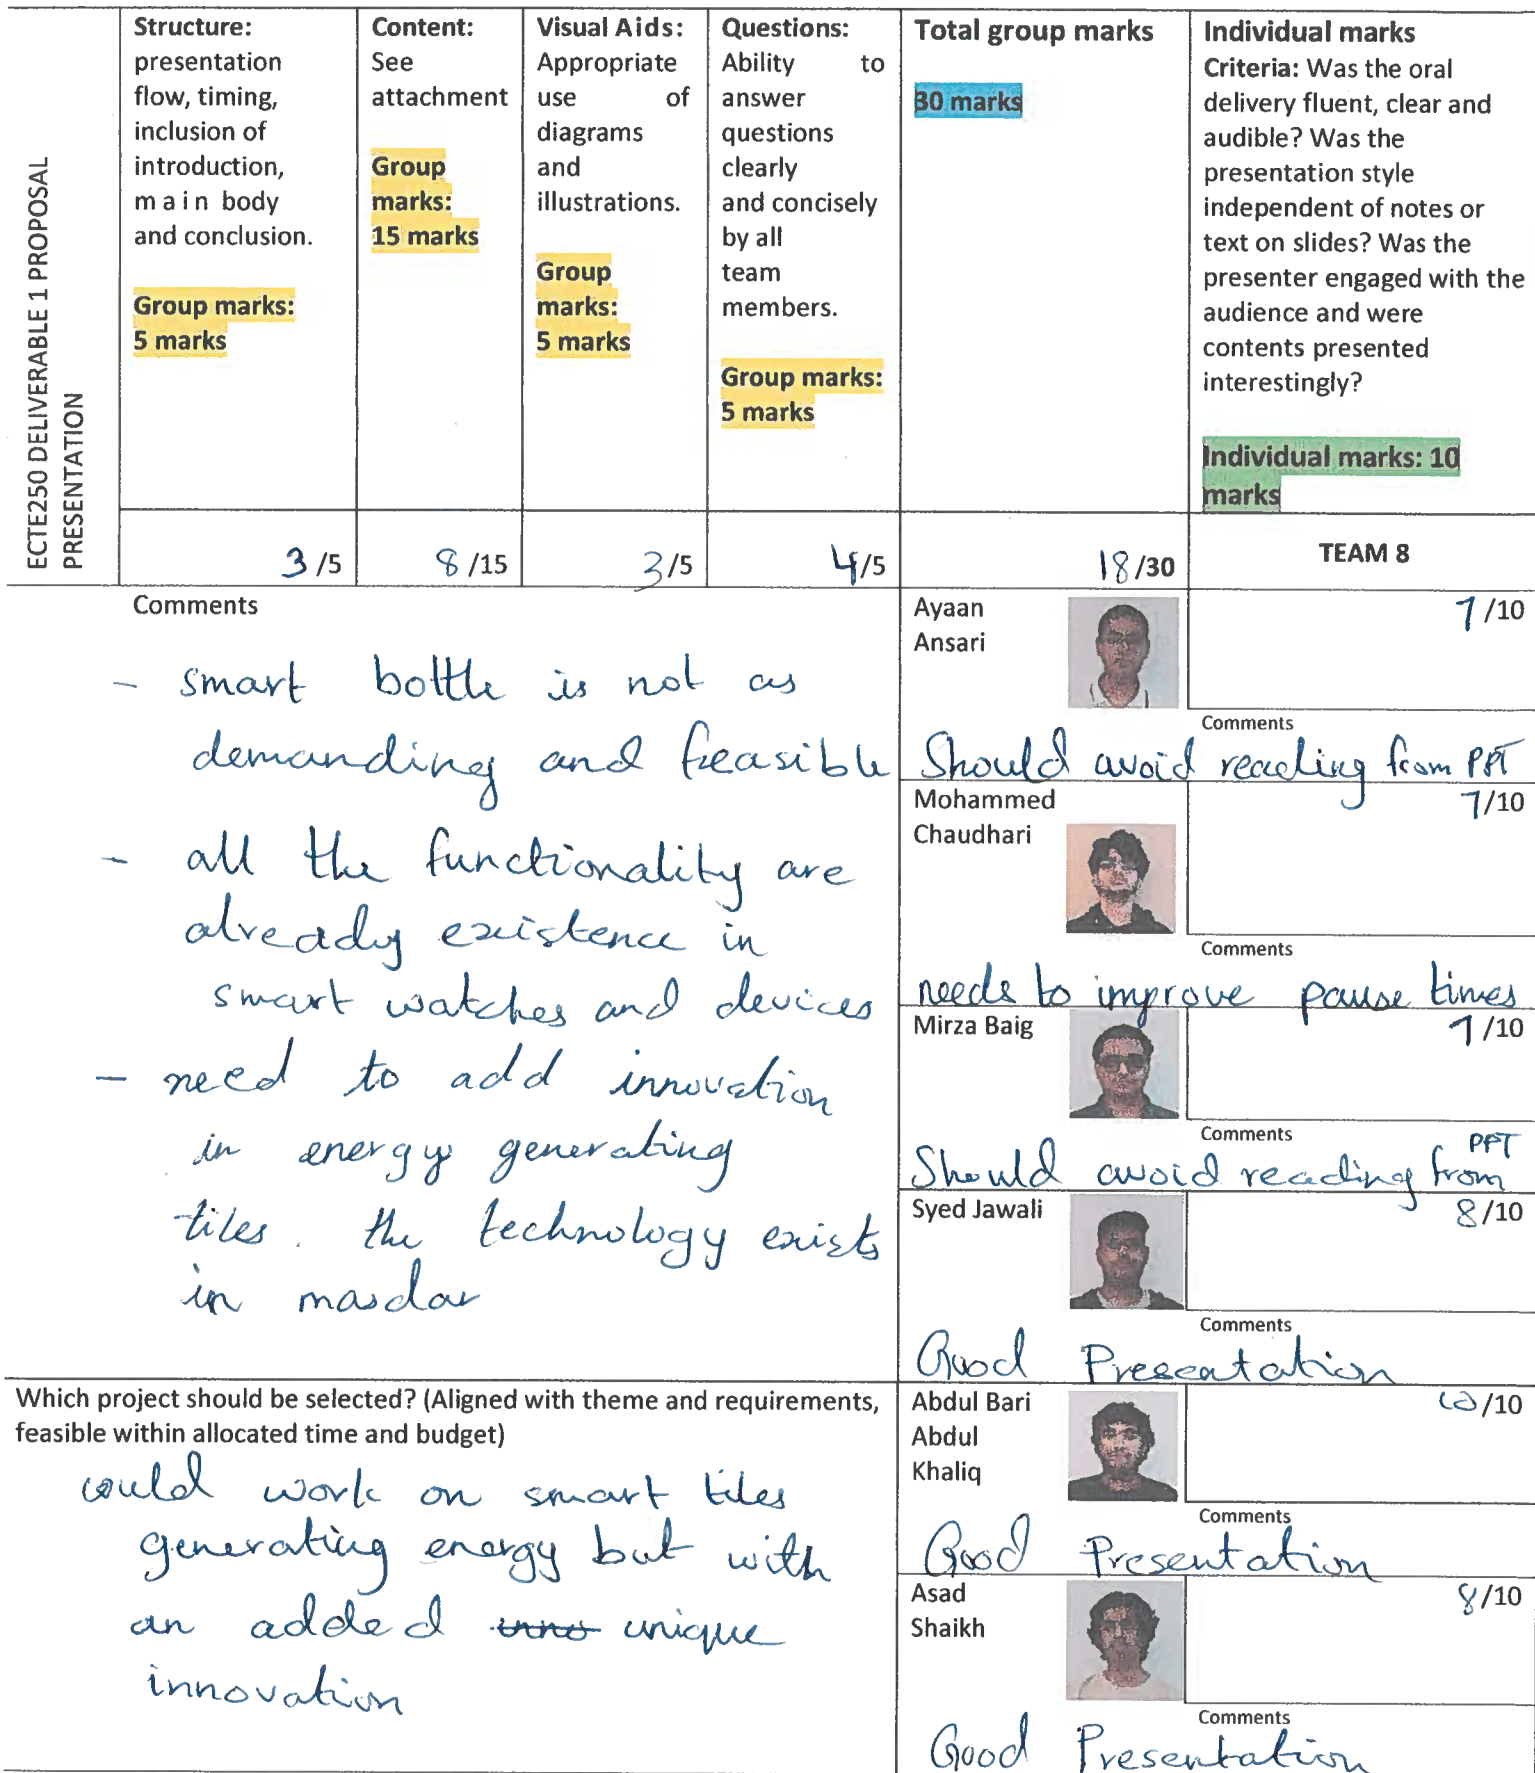 ECTE250 DELIVERABLE 1 PROPOSAL
PRESENTATION
Structure:
presentation
flow, timing,
inclusion of
introduction,
main body
and conclusion.
Group marks:
5 marks
Content:
See
attachment
Group
marks:
15 marks
Visual Aids:
Appropriate
use of
diagrams
and
illustrations.
Group
marks:
5 marks
Questions:
Ability to
answer
questions
clearly
and concisely
by all
team
members.
Group marks:
5 marks
Total group marks
30 marks
Individual marks
Criteria: Was the oral
delivery fluent, clear and
audible? Was the
presentation style
independent of notes or
text on slides? Was the
presenter engaged with the
audience and were
contents presented
interestingly?
Individual marks: 10
marks
3 /5
8 /15
3/5
4/5
18/30
TEAM 8
Comments
- smart bottle is not as
demanding and feasible
- all the functionality are
already existence in
smart watches and devices
- need to add innovation
in energy generating
tiles. the technology exists
in masdar
Which project should be selected? (Aligned with theme and requirements,
feasible within allocated time and budget)
could work on smart tiles
generating energy but with
an added unique
innovation
Ayaan
Ansari
7/10
Comments
Should avoid reading from PPT
Mohammed
Chaudhari
7/10
Comments
needs to improve pause times
Mirza Baig
7/10
Comments
Should avoid reading from PPT
Syed Jawali
8/10
Comments
Good Presentation
Abdul Bari
Abdul
Khaliq
/10
Comments
Good Presentation
Asad
Shaikh
8/10
Comments
Good Presentation